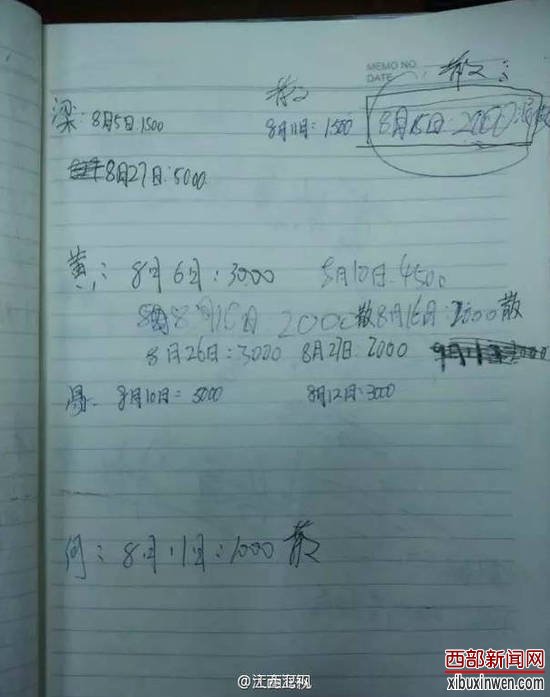 MEMO NO.
DATE
散 散:
梁: 8月5日:1500 8月11日:1500 8月15日:2000
8月27日:5000
黄: 8月6日:3000 8月10日:4500
8月15日 2000散 8月16日:2000散
8月26日:3000 8月27日:2000
8月10日:5000 8月12日:3000
何: 8月11日:1000 散
@江西卫视
西部新闻网
xibuxinwen.com